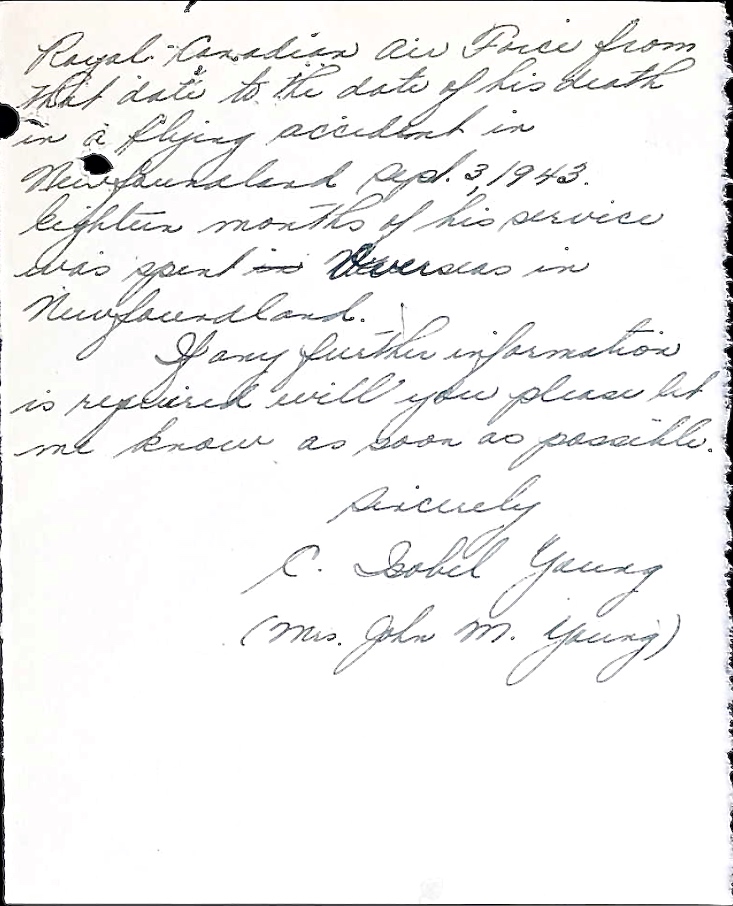 Royal Canadian Air Force from
that date to the date of his death
in a flying accident in
Newfoundland Sept. 3, 1943.
Eighteen months of his service
was spent in Overseas in
Newfoundland.
If any further information
is required will you please let
me know as soon as possible.
Sincerely
C. Isobel Young
(Mrs. John M. Young)